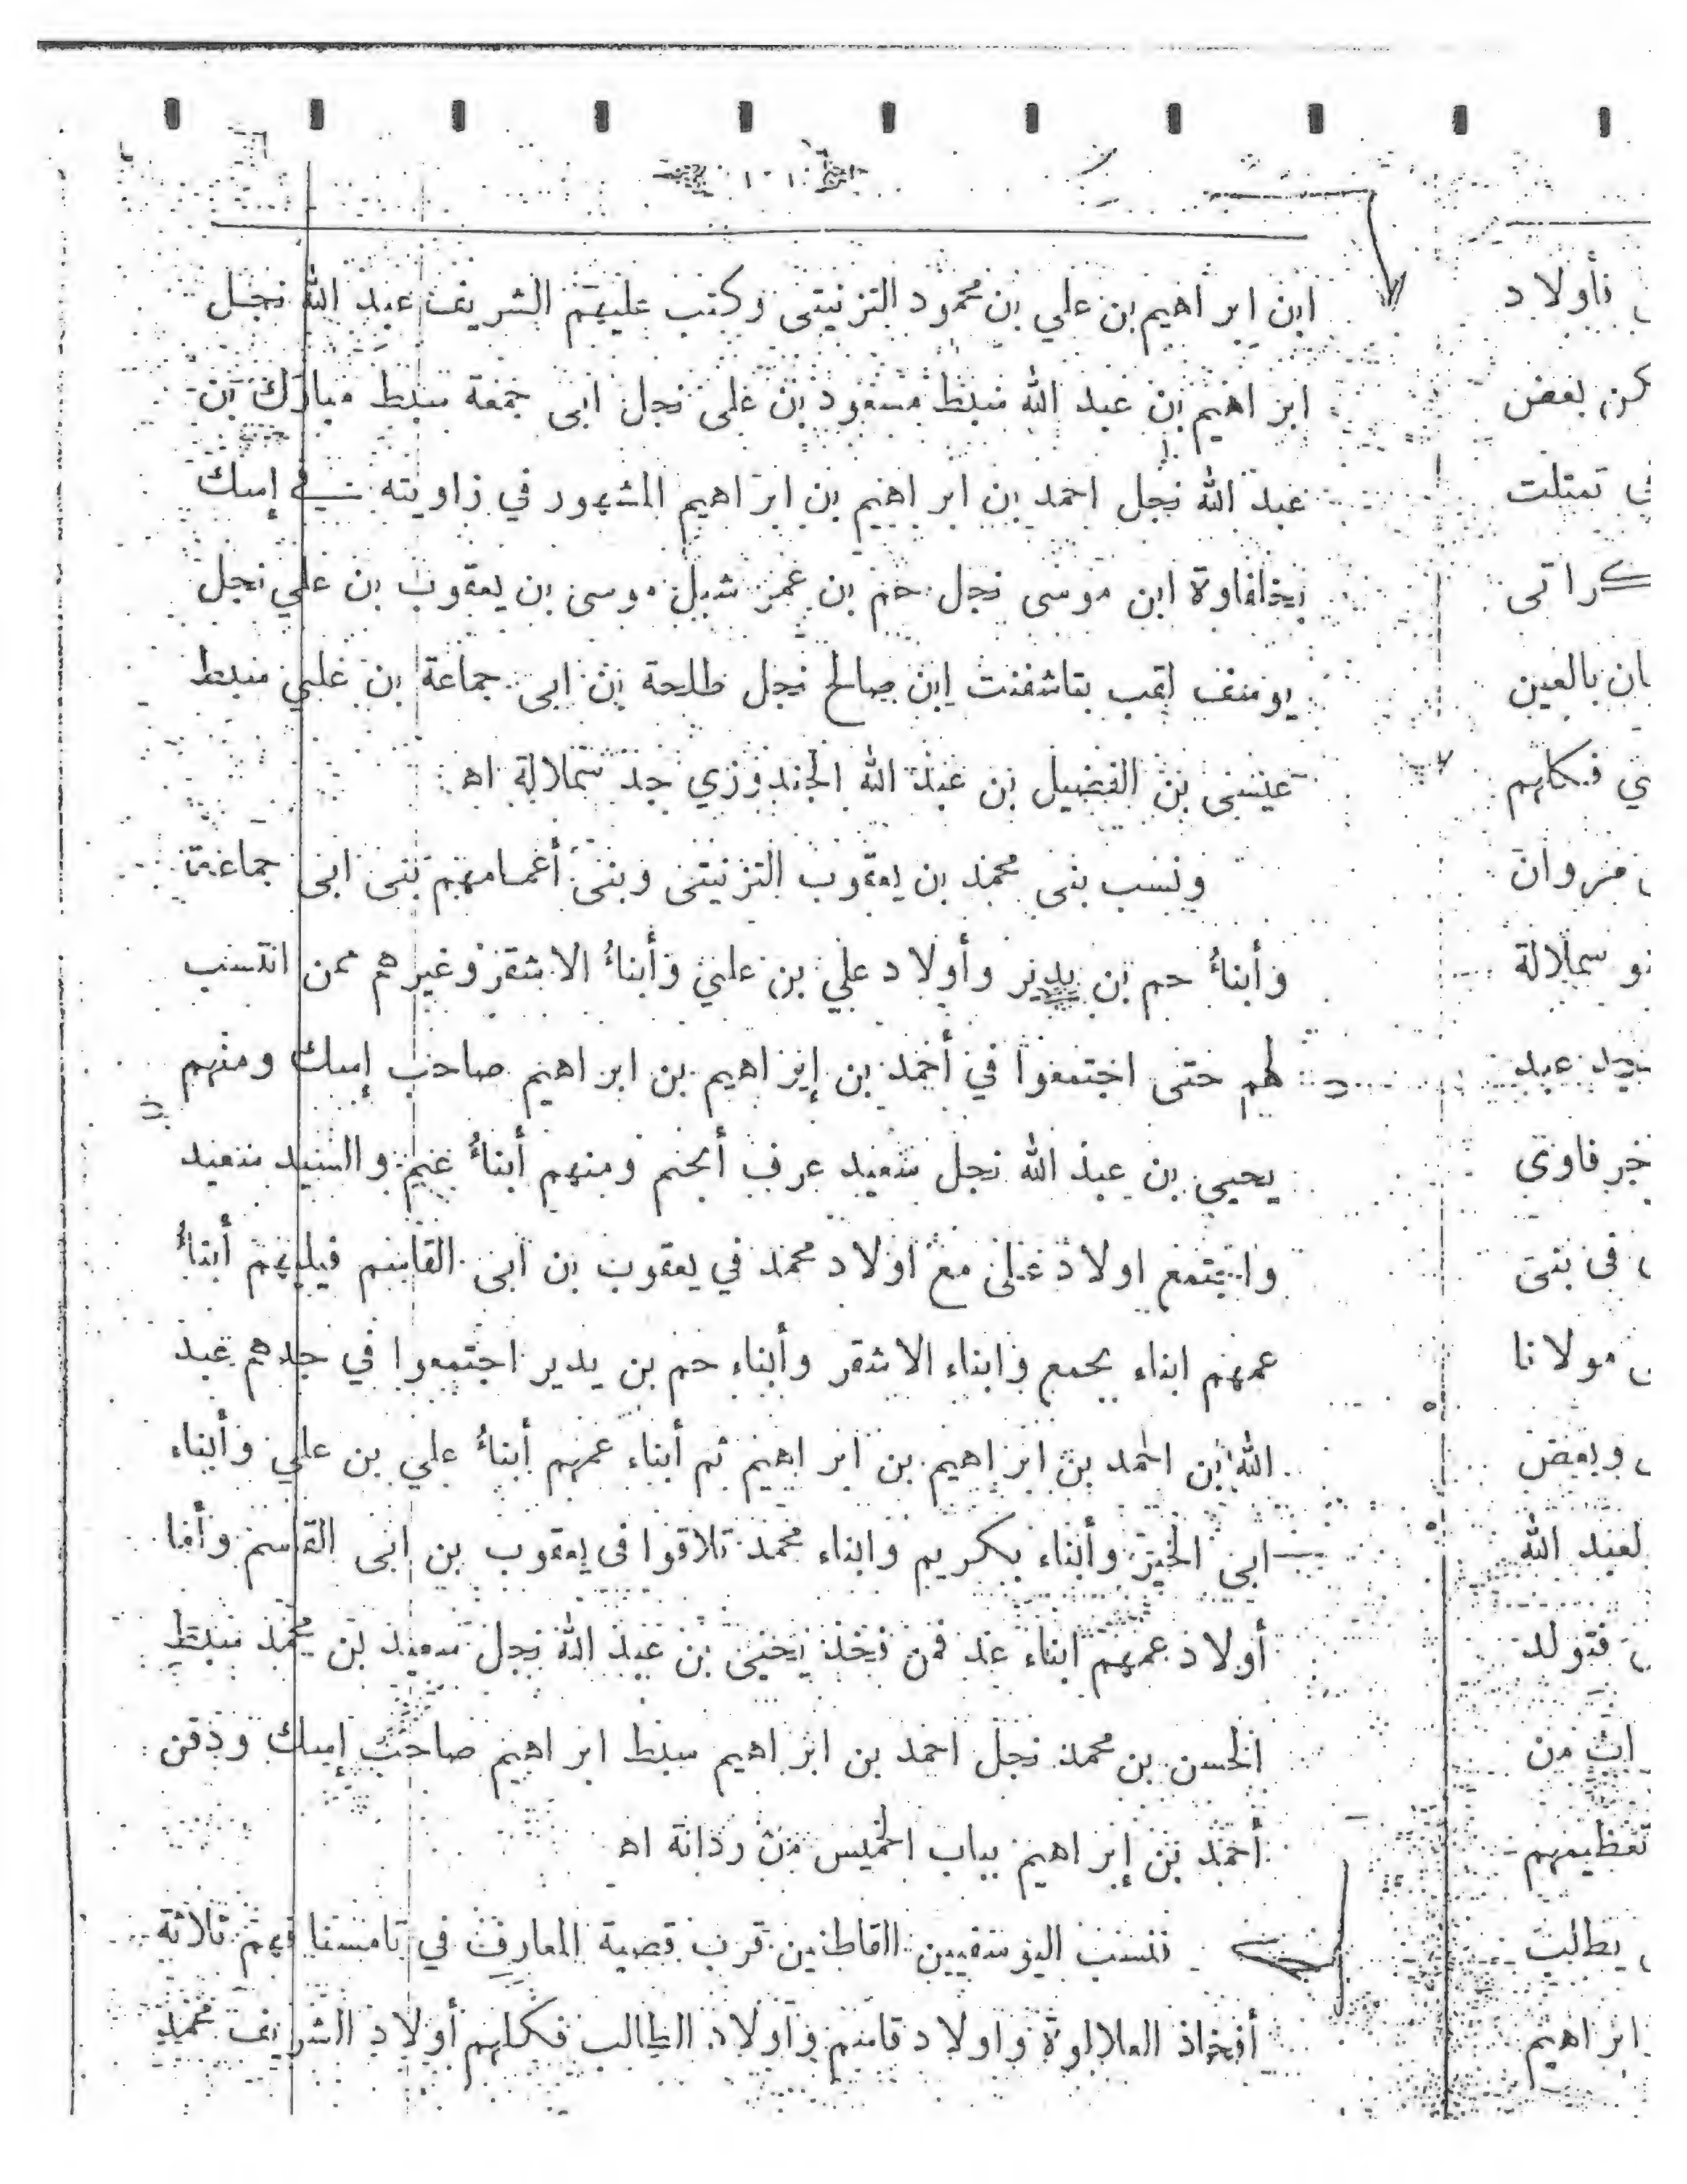 ١٠١
ابن ابراهيم بن علي بن محمود التزنيتى وكتب عليهم الشريف عبد الله نجل
ابراهيم بن عبد الله سبط مسعود بن على نجل ابى جمعة سبط مبارك بن
عبد الله نجل احمد بن ابراهيم بن ابراهيم المشهور في زاويته في إسك
ابن موسى نجل حم بن عمر شبل موسى بن يعقوب بن علي نجل
يوسف لقب بتاشفنت ابن صالح نجل طلحة بن ابى جماعة بن علي سبط
عيسى بن الفضيل بن عبد الله الجندوزي جد سملالة اه
ونسب بنى محمد بن يعقوب التزنيتى وبنى أعمامهم بنى ابى جماعة
وأبناءُ حم بن يدير وأولاد علي بن علي وأبناءُ الاشقر وغيرهم ممن انتسب
لهم حتى اجتمعوا في أحمد بن إبراهيم بن ابراهيم صاحب إسك ومنهم
يحيى بن عبد الله نجل سعيد عرف أبخم ومنهم أبناءُ غنم والسيد سعيد
واجتمع اولاد على مع اولاد محمد في يعقوب بن ابى القاسم فيليهم أبناءُ
عمهم ابناء بجمع وابناء الاشقر وأبناء حم بن يدير اجتمعوا في جدهم عبد
الله ابن احمد بن ابراهيم بن ابراهيم ثم أبناء عمهم أبناءُ علي بن علي وأبناء
ابى الخير وأبناء بكريم وابناء محمد تلاقوا فى يعقوب بن ابى القاسم وأما
أولاد عمهم ابناء عد فمن فخذ يحيى بن عبد الله نجل سعيد بن محمد سبط
الحسن بن محمد نجل احمد بن ابراهيم سبط ابراهيم صاحب إسك ودفن
أحمد بن إبراهيم بباب الخميس من ردانة اه
نسب اليوسفيين القاطنين قرب قصبة المعارف في تامسنا فهم ثلاثة
أفخاذ العلالوة واولاد قاسم وأولاد الطالب فكلهم أولاد الشريف محمد
فأولاد
بعض
تمتلت
كراتى
بالعين
فكلهم
مروان
سملالة
عبد
فى بنى
مولانا
وبعض
لعبد الله
فتولد
من
تعظيمهم
يطالب
ابراهيم